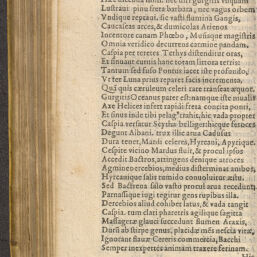 Lustrari pinu freta barbara, nec vagus orbem
Vndique reptaui, sic vasti flumina Gangis,
Caucaseas arces, & dumicolas Arienos
Incentore canam Phœbo, Musisque magistris
Omnia veridico decurrens carmine pandam,
Caspia sed pateret Tethys distenditur oras,
Et sinuant cuntis hanc totam littora terris:
Tantum sed fuso Pontus iacet iste profundo,
Vt ter Luna prius reparet facies incrementa,
Quâ quis cœruleum celeri rate transeat æquor.
Gurgitis Oceanus pater est: namque iste niualis
Axe Helices infert rapidi freta concita ponti,
Et sinus inde vbi pelag' trahit, hic vada propter
Caspia versatur Scytha belligerhicque feroces
Degunt Albani. trux illic arua Cadusus
Dura tenet, Mardi celeres, Hyrcani, Apyrique.
Cespite vicino Mardus fluit, & procul ipsos
Accedit Bactros, attingens denique atroces
Agmine ercebios, medius disterminat ambos,
Hyrcanique salis tumido conuoluitur æstu.
Sed Bactrena solo vasto procul arua recedunt,
Parnassique iugi tegitur gens rupibus illa.
Dercebios aliud cohibet latus, & vada tangit
Caspia. tum clari pharetris agilique sagitta
Massagetæ glauci succedunt flumen Araxis,
Durū ab stirpe genus, placidæ mēs nescia vitæ,
Ignorant flauæ Cereris commercia, Bacchi
Semper inexpertes animam traxere ferinam.